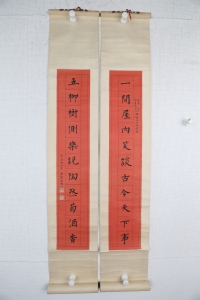 一間屋内笑談古今天下事
五柳樹側樂説陶然菊酒香